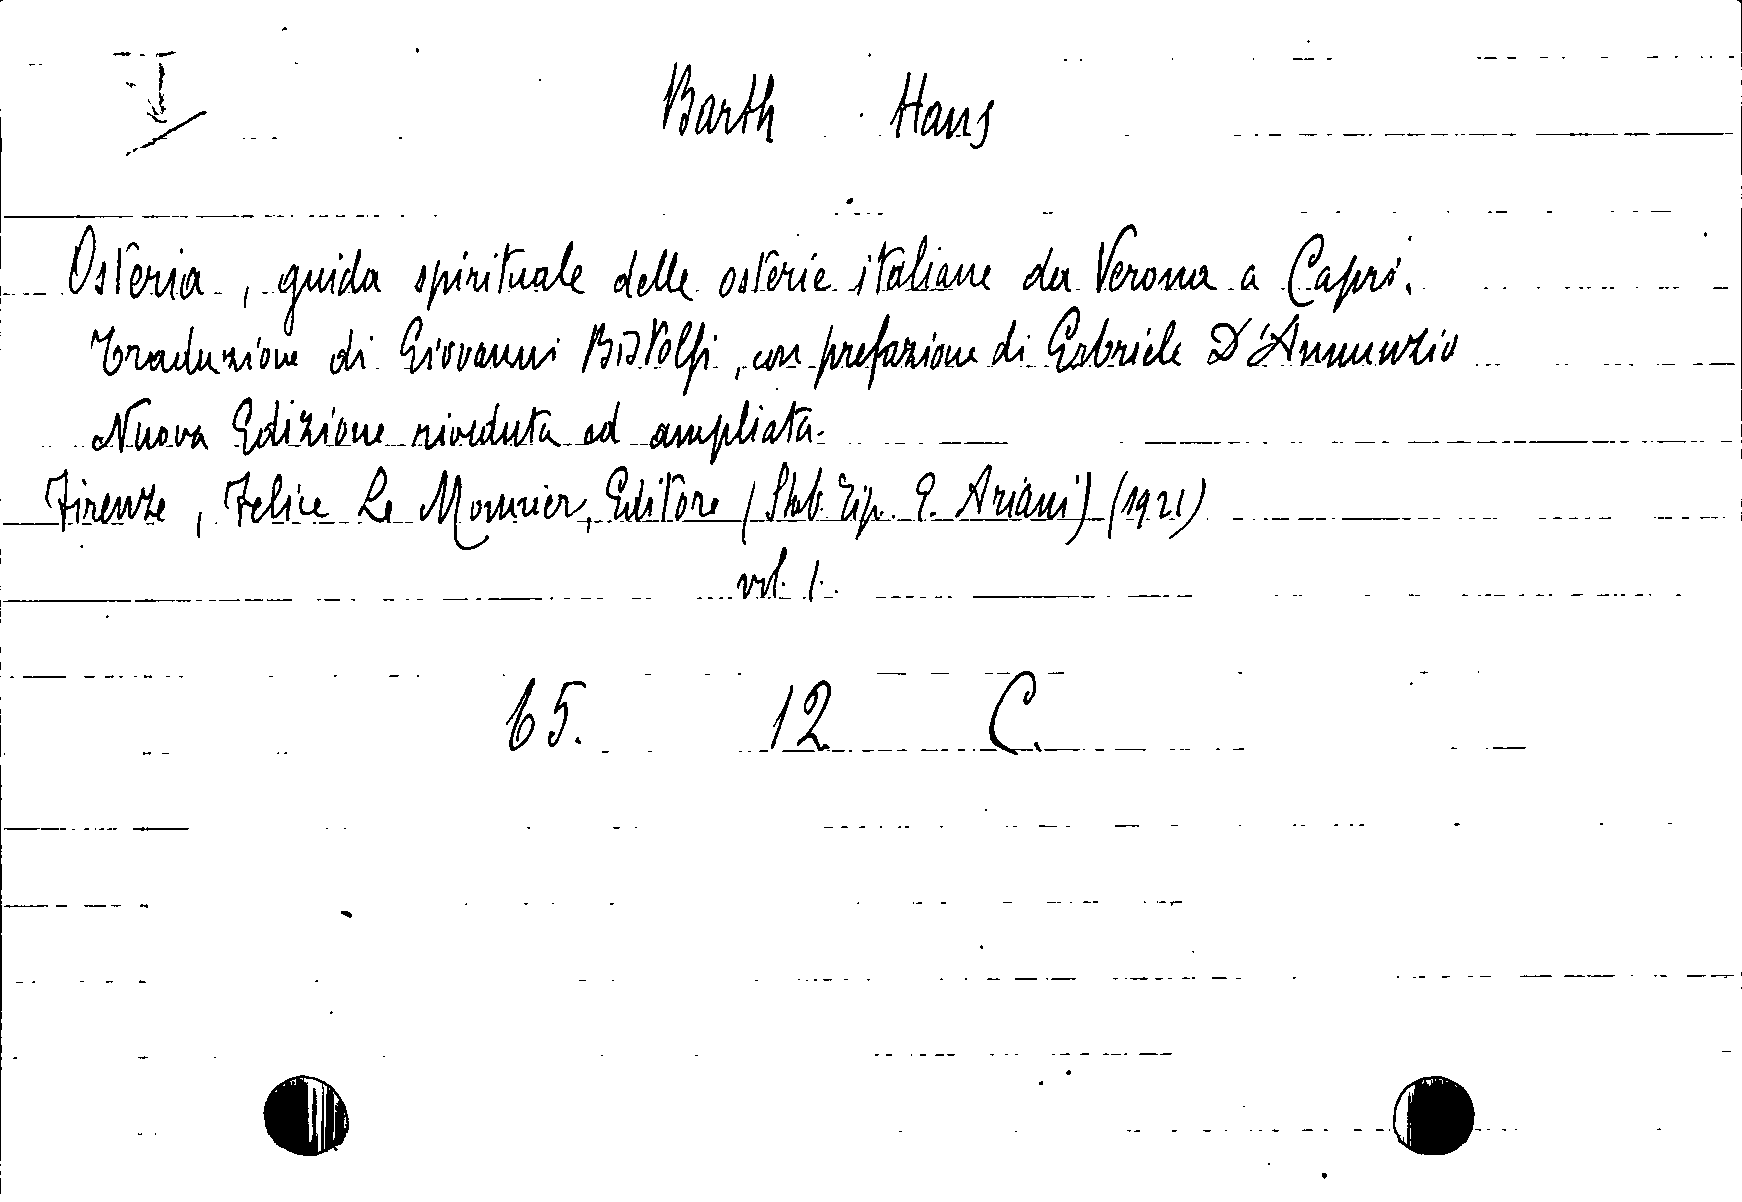 I
Barth Hans
Osteria, guida spirituale delle osterie italiane da Verona a Capri.
Traduzione di Giovanni Bistolfi, con prefazione di Gabriele D'Annunzio
Nuova Edizione riveduta ed ampliata.
Firenze, Felice Le Monnier, Editore (Stab. Tip. E. Ariani) (1921)
vol. 1.
65. 12 C.